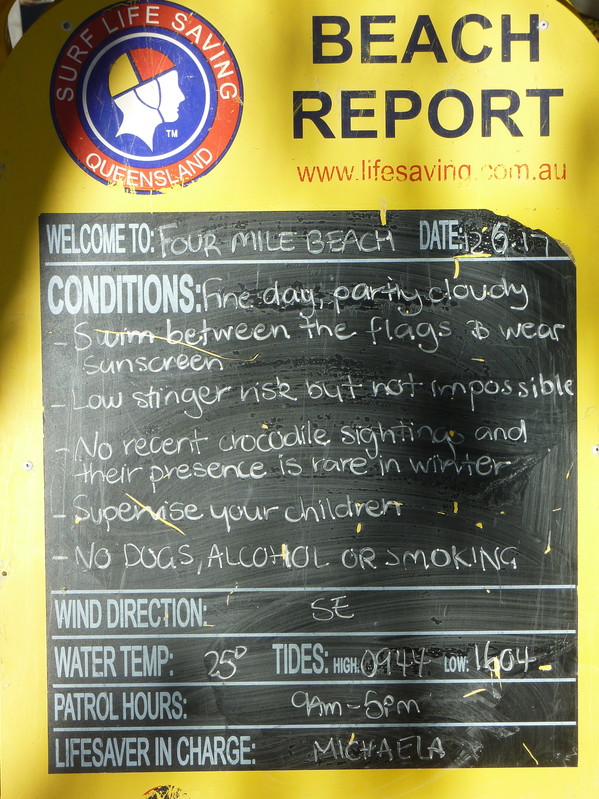 SURF LIFE SAVING
QUEENSLAND
TM
BEACH
REPORT
www.lifesaving.com.au
WELCOME TO: FOUR MILE BEACH DATE:
CONDITIONS: Fine day, partly cloudy
- Swim between the flags & wear
sunscreen
- Low stinger risk but not impossible
- No recent crocodile sightings and
their presence is rare in winter
- Supervise your children
- NO DOGS, ALCOHOL OR SMOKING
WIND DIRECTION: SE
WATER TEMP: 25° TIDES: HIGH: 0944 LOW: 1604
PATROL HOURS: 9am-5pm
LIFESAVER IN CHARGE: MICHAELA